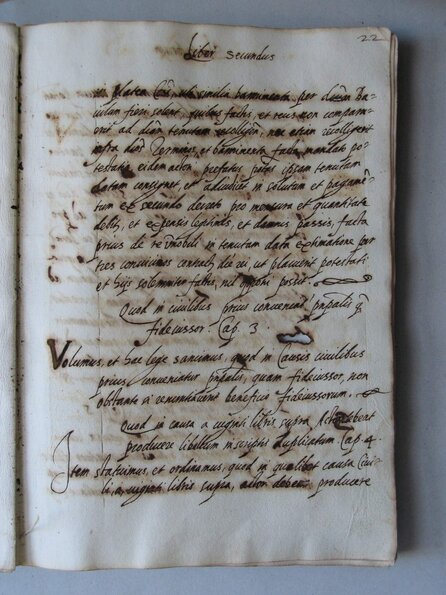 22
Liber secundus
in platea Cõis, ubi similia bannimenta per dictam Ba-
iulum fieri solent, quibus factis, et reus non comparu-
erit ad dictam tenutam recolligen, nec etiam recolligerit
infra dictos Terminos, et bannimenta facta mandato po-
testatis eidem actor prefatus potest ipsam tenutam
datam consignet, et adiudicet in solutum et pagamẽ-
tum ex secundo decreto pro mensura et quantitate
debiti, et expensis legitimis, et damnis passis, facta
prius de re imobili in tenutam data extimatione per
tres convicinos contrate dictae rei, ut placuerit potestati
et his solemniter factis, nil opponi possit.
Quod in civilibus prius conveniatur prĩpalis q̃
fideiussor. Cap. 3.
Volumus, et hac lege sancimus, quod in Causis civilibus
prius conveniatur prĩpalis, quam fideiussor, non
obstante si renuntiaverit beneficio fideiussorum.
Quod in causa a viginti libris supra Actor debeat
producere libellum in scriptis duplicatum Cap. 4.
Item statuimus, et ordinamus, quod in qualibet causa Civi-
li, a viginti libris supra, actor debeat producere